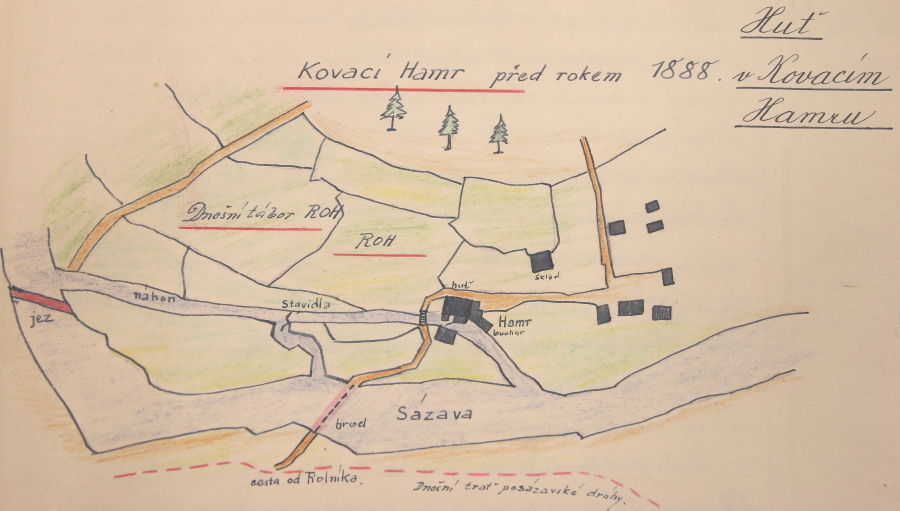 Huť
Kovací Hamr před rokem 1888.
v Kovacím
Hamru
Dnešní tábor ROH
ROH
sklad
huť
náhon
stavidla
jez
Hamr
buchar
Sázava
brod
cesta od Rolníka.
Dnešní trať posázavské dráhy.